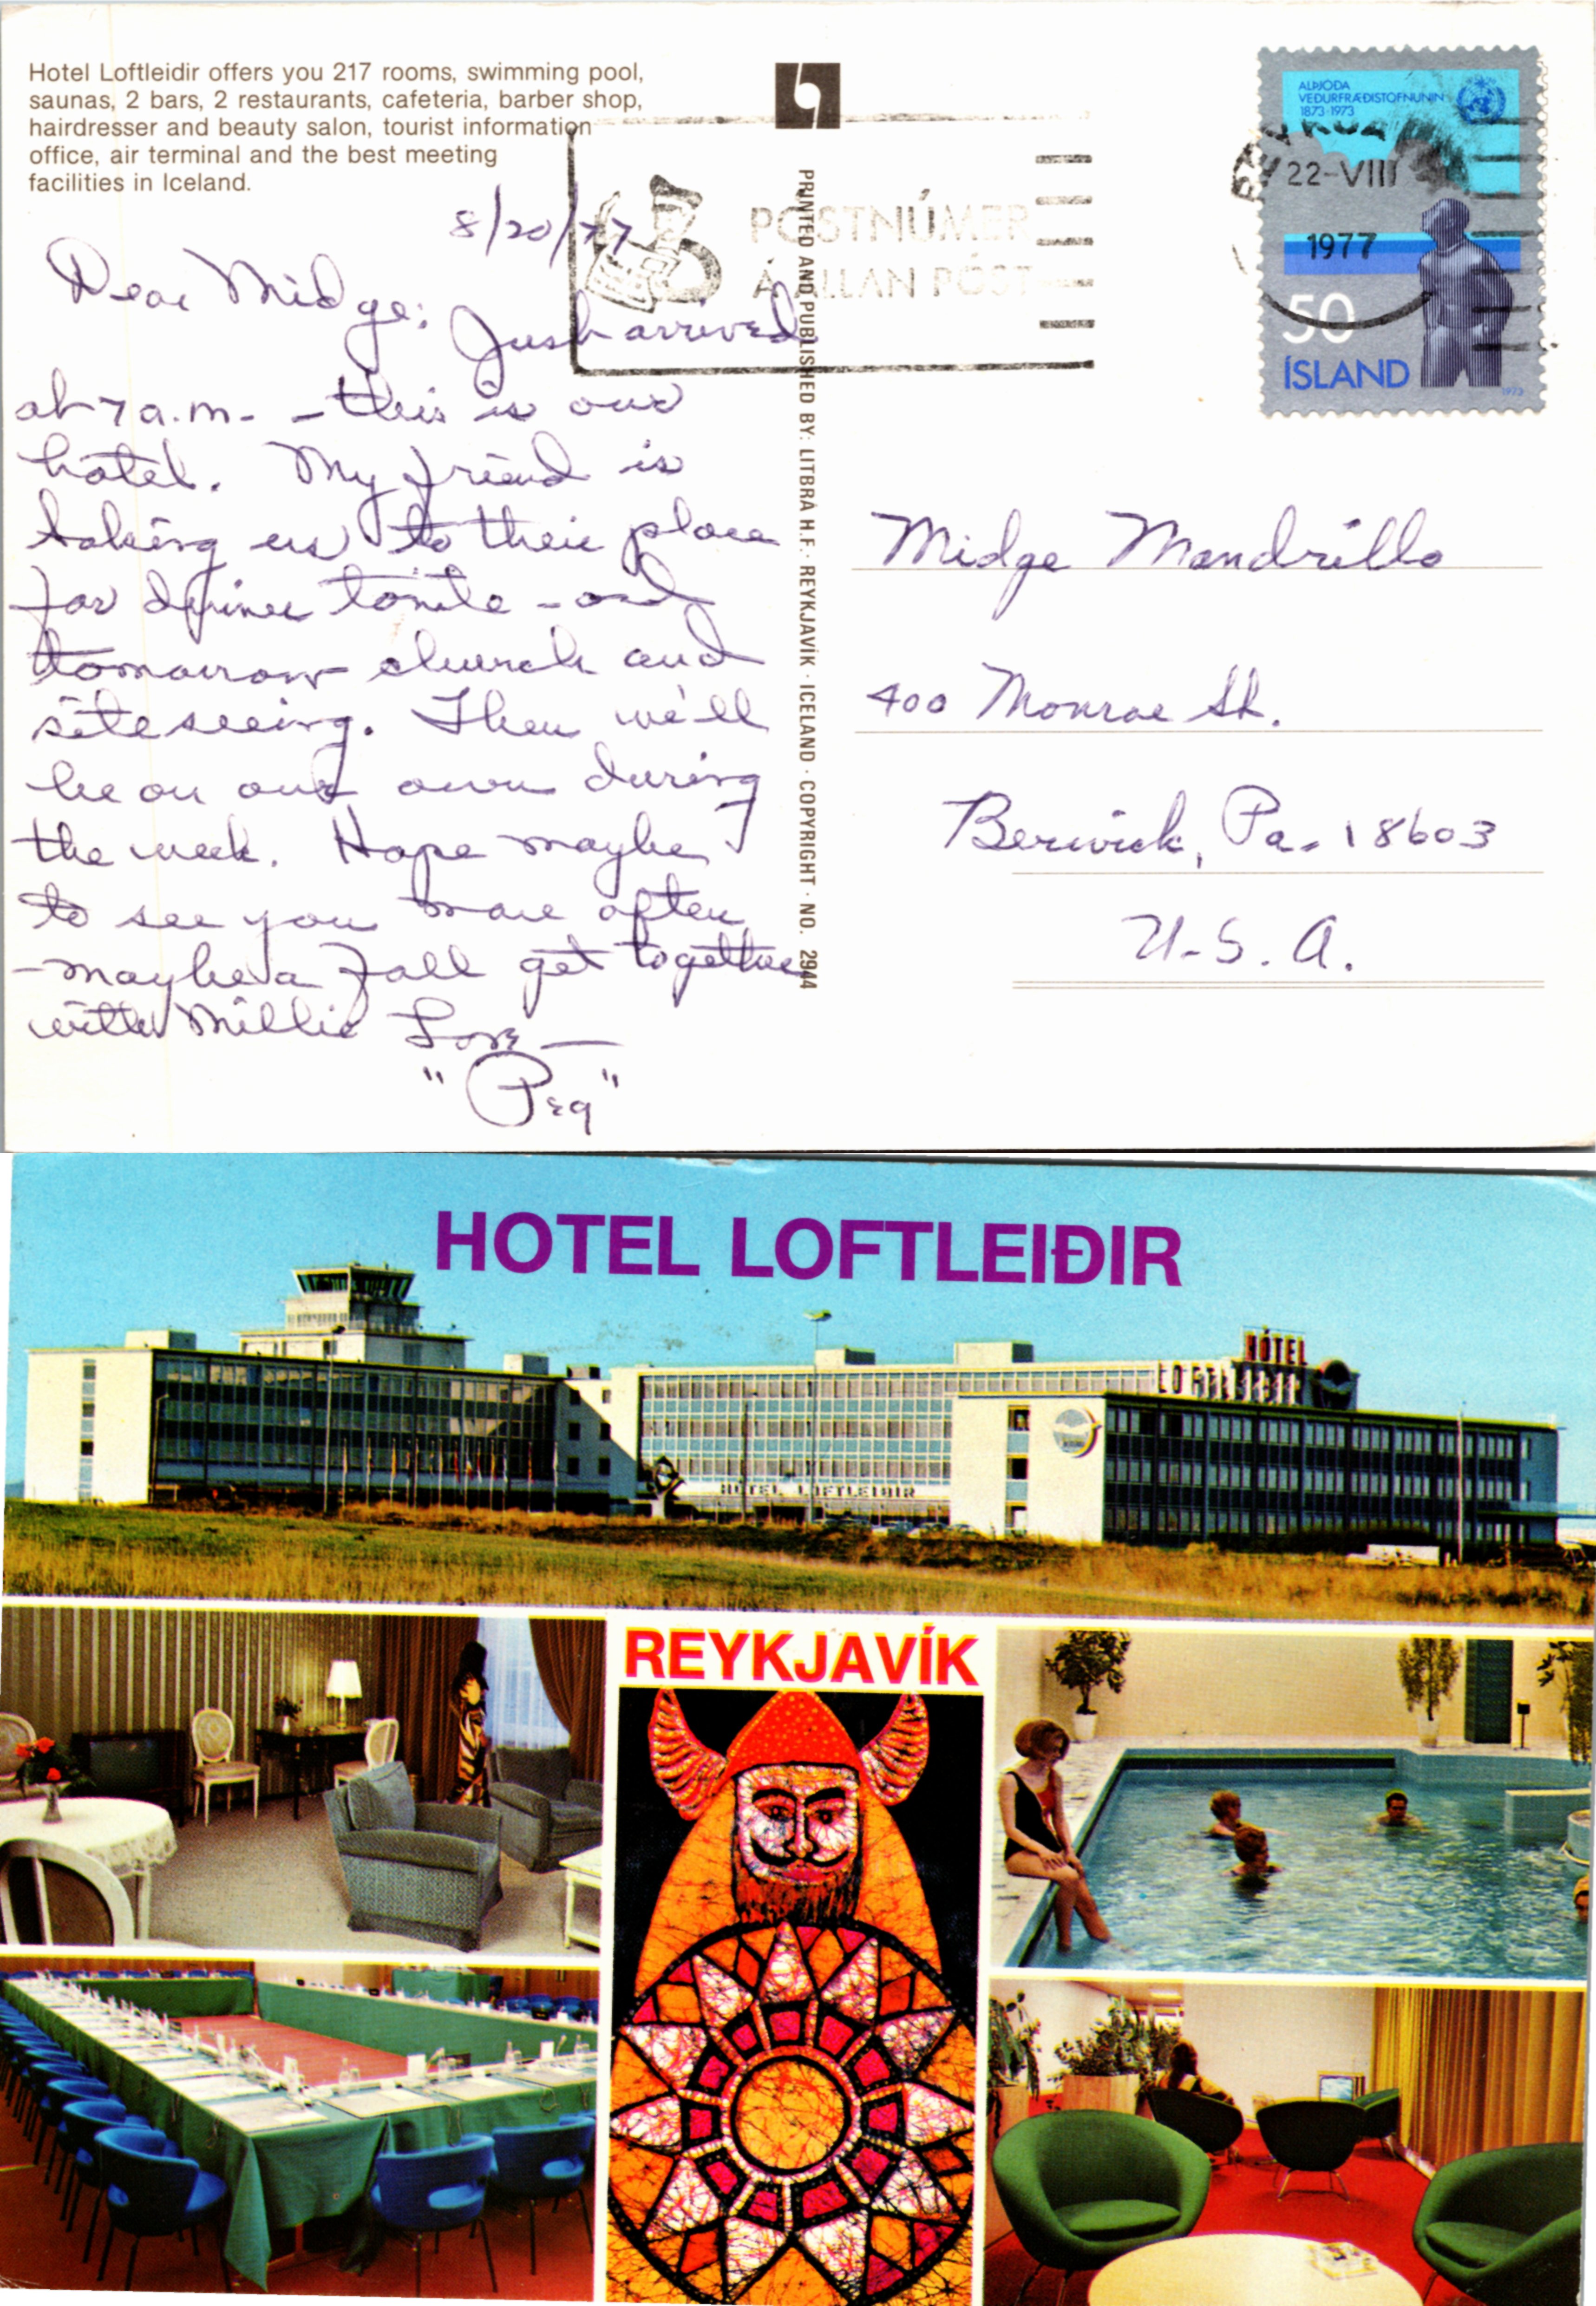 Hotel Loftleidir offers you 217 rooms, swimming pool,
saunas, 2 bars, 2 restaurants, cafeteria, barber shop,
hairdresser and beauty salon, tourist information
office, air terminal and the best meeting
facilities in Iceland.
8/20/77
Dear Midge:
Just arrived
at 7 a.m. - this is our
hotel. My friend is
taking us to their place
for dinner tonite - and
tomorrow church and
siteseeing. Then we'll
be on our own during
the week. Hope maybe
to see you more often
- maybe a Fall get together
with Millie Love —
"Peg"
PRINTED AND PUBLISHED BY: LITBRÁ H.F. · REYKJAVÍK · ICELAND · COPYRIGHT · NO. 2944
PÓSTNÚMER
Á ALLAN PÓST
ALÞJÓÐA
VEÐURFRÆÐISTOFNUNIN
1873-1973
22-VIII
1977
50
ÍSLAND
1973
Midge Mandrillo
400 Monroe St.
Berwick, Pa. 18603
U.S.A.
HOTEL LOFTLEIÐIR
HÓTEL
LOFTLEIÐIR
HÓTEL LOFTLEIÐIR
REYKJAVÍK